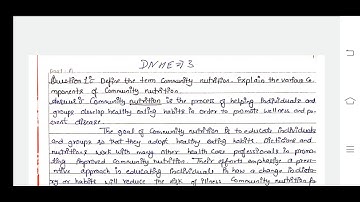 DNHE⇒3
Part-A
Question 1:- Define the term Community nutrition. Explain the various Co-
mponents of Community nutrition.
Answer:- Community nutrition is the process of helping Individuals and
groups develop healthy eating habits in order to promote wellness and pr-
event disease.
The goal of Community nutrition is to educate individuals
and groups so that they adopt healthy eating habits. Dieticians and
nutritions work with many other health care professionals in provi-
ding improved Community nutrition. Their efforts emphasize a preve-
ntive approach in educating individuals in how a change in dieta-
ry or habits will reduce the risk of illness. Community nutrition